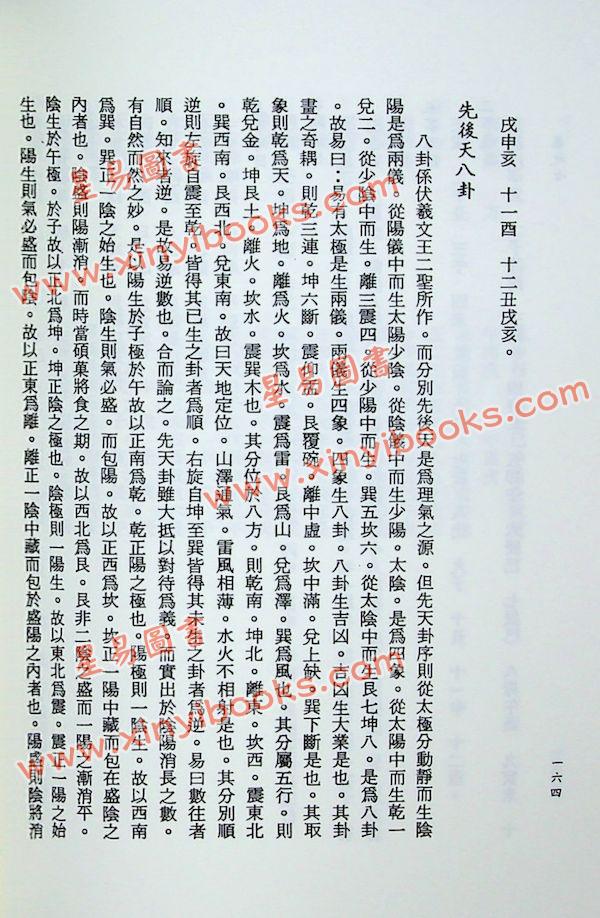 戌申亥　十一酉　十二丑戌亥。
先後天八卦
八卦係伏羲文王二聖所作。而分別先後天是爲理氣之源。但先天卦序則從太極分動靜而生陰
陽是爲兩儀。從陽儀中而生太陽少陰。從陰儀中而生少陽。太陰。是爲四象。從太陽中而生乾一
兌二。從少陰中而生。離三震四。從少陽中而生。巽五坎六。從太陰中而生艮七坤八。是爲八卦
。故易曰：易有太極是生兩儀。兩儀生四象。四象生八卦。八卦生吉凶。吉凶生大業是也。其卦
畫之奇耦。則乾三連。坤六斷。震仰盂。艮覆碗。離中虛。坎中滿。兌上缺。巽下斷是也。其取
象則乾爲天。坤爲地。離爲火。坎爲水。震爲雷。艮爲山。兌爲澤。巽爲風也。其分屬五行。則
乾兌金。坤艮土。離火。坎水。震巽木也。其分位於八方。則乾南。坤北。離東。坎西。震東北
。巽西南。艮西北。兌東南。故曰天地定位。山澤通氣。雷風相薄。水火不相射是也。其分別順
逆則左旋自震至乾。皆得其已生之卦者爲順。右旋自坤至巽皆得其未生之卦者爲逆。易曰數往者
順。知來者逆。是故易逆數也。合而論之。先天卦雖大抵以對待爲義。而實出於陰陽消長之數。
有自然而然之妙。是以陽生於子極於午故以正南爲乾。乾正陽之極也。陽極則一陰生。故以西南
爲巽。巽正一陰之始生也。陰生則氣必盛。而包陽。故以正西爲坎。坎正一陽中藏而包在盛陰之
內者也。陰盛則陽漸消。而時當碩菓將食之期。故以西北爲艮。艮非二陰之盛而一陽之漸消乎。
陰生於午極。於子故以正北爲坤。坤正陰之極也。陰極則一陽生。故以東北爲震。震正一陽之始
生也。陽生則氣必盛而包陰。故以正東爲離。離正一陰中藏而包於盛陽之內者也。陽盛則陰將消
一六四
星易圖書
www.xinyibooks.com
星易圖書
www.xinyibooks.com
星易圖書
www.xinyibooks.com